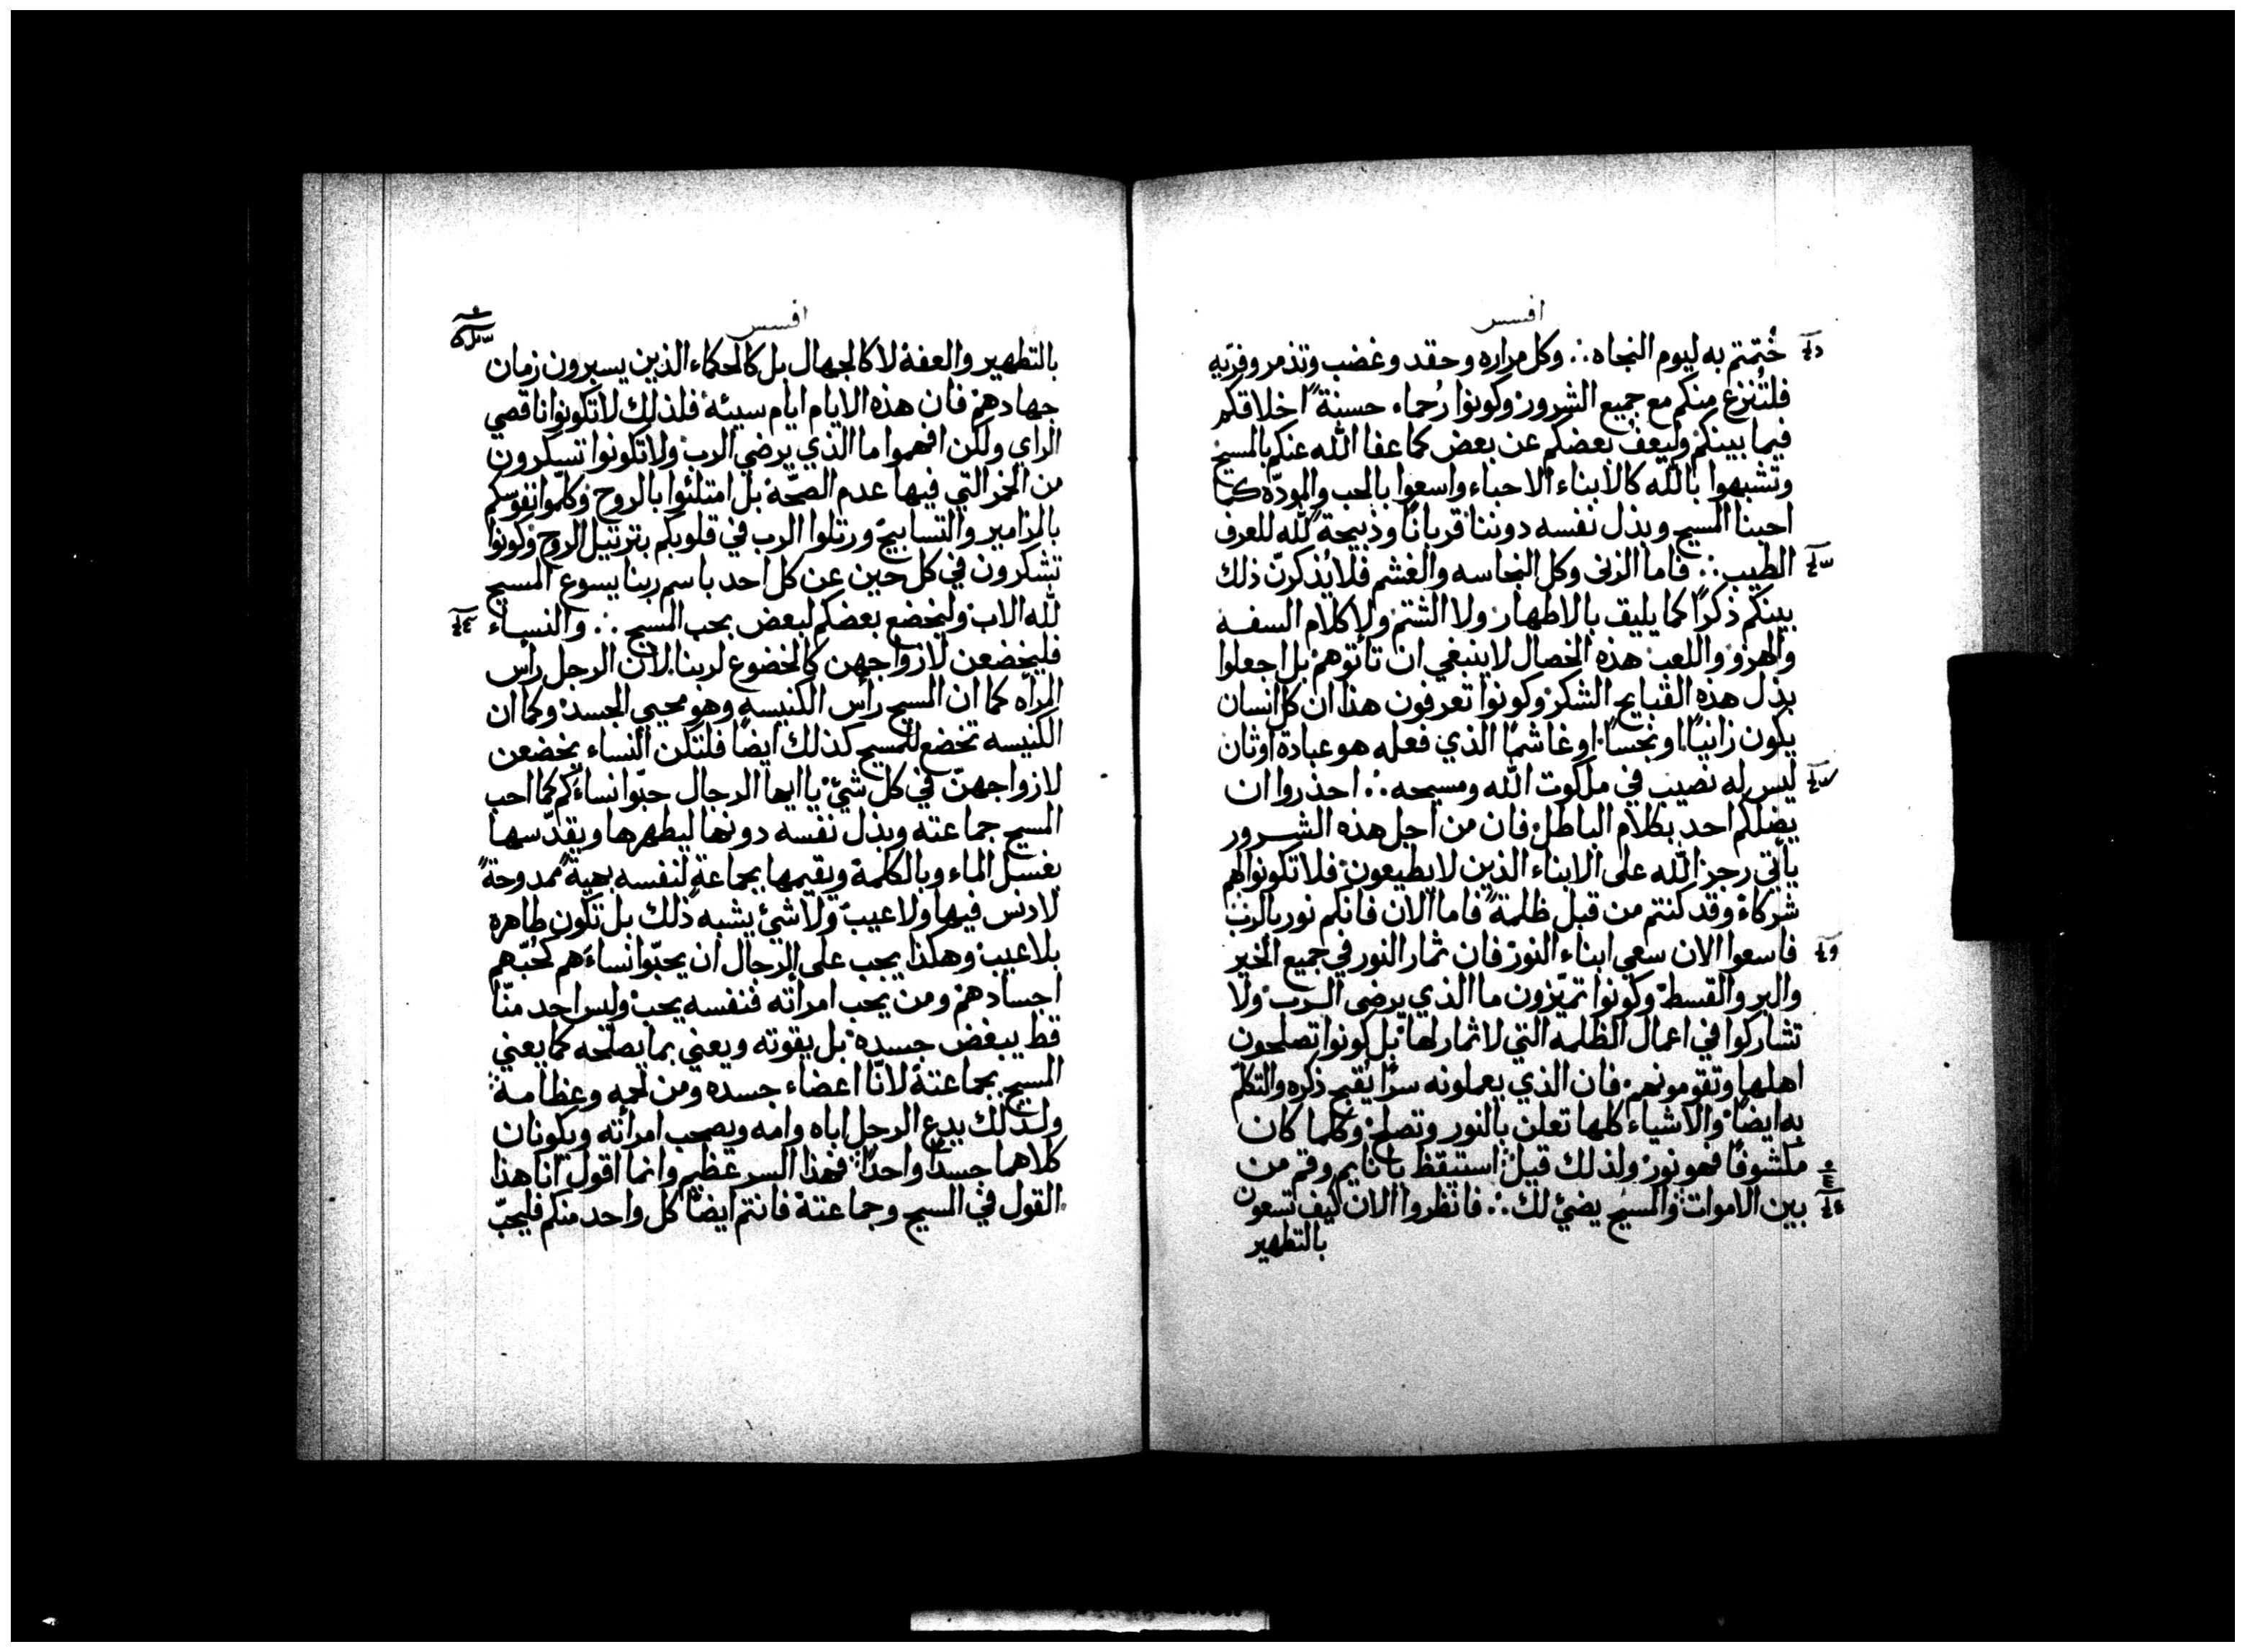 افسس
خُتمتم به ليوم النجاه ∴ وكل مراره وحقد وغضب وتذمر وفريّه
فلتُنزع منكم مع جميع الشرور وكونوا رُحماء حسنةً اخلاقكم
فيما بينكم وليعفُ بعضكم عن بعض كما عفا الله عنكم بالمسيح
وتشبهوا بالله كالابناء الاحباء واسعوا بالحب والمودّه كما
احبنا المسيح وبذل نفسه دوننا قربانًا وذبيحةً لله للعرف
الطيب ∴ فاما الزنى وكل النجاسه والغشم فلا يُذكرنّ ذلك
بينكم ذكرًا كما يليق بالاطهار ولا الشتم ولا كلام السفه
والهزو واللعب هذه الخصال لا ينبغي ان تاتوهم بل اجعلوا
بدل هذه القبايح الشكر وكونوا تعرفون هذا ان كل انسان
يكون زانيًا او نجسًا او غاشمًا الذي فعله هو عبادة اوثان
ليس له نصيب في ملكوت الله ومسيحه ∴ احذروا ان
يضلكم احد بكلام الباطل فان من اجل هذه الشرور
يأتي رجز الله على الابناء الذين لا يطيعون فلا تكونوا لهم
شركاء وقد كنتم من قبل ظلمةً فاما الان فانكم نور بالرب
فاسعوا الان سعي ابناء النور فان ثمار النور في جميع الخير
والبر والقسط وكونوا تميّزون ما الذي يرضى الرب ولا
تشاركوا في اعمال الظلمه التي لا ثمار لها بل كونوا تصلحون
اهلها وتقومونهم فان الذي يعملونه سرًّا يُقبح ذكره والتكلّم
به ايضًا والاشياء كلها تعلن بالنور وتصلح وكلما كان
مكشوفًا فهو نور ولذلك قيل استيقظ يا نايم وقم من
بين الاموات والمسيح يضئ لك ∴ فانظروا الان كيف تسعون
بالتطهير
افسس
بالتطهير والعفة لا كالجهال بل كالحكماء الذين يسيرون زمان
جهادهم فان هذه الايام ايام سيئة فلذلك لا تكونوا ناقصي
الراي ولكن افهموا ما الذي يرضي الرب ولا تكونوا تسكرون
من الخمر التي فيها عدم الصحّة بل امتلئوا بالروح وكلّموا نفوسكم
بالمزامير والتسابيح ورتلوا الرب في قلوبكم بترتيل الروح وكونوا
تشكرون في كل حين عن كل احد باسم ربنا يسوع المسيح
لله الاب وليخضع بعضكم لبعض بحب المسيح ∴ والنساء
فليخضعن لازواجهن كالخضوع لربنا لان الرجل رأس
المرأه كما ان المسيح رأس الكنيسه وهو محيي الجسد وكما ان
الكنيسه تخضع للمسيح كذلك ايضًا فلتكن النساء يخضعن
لازواجهنّ في كل شئ يا ايها الرجال حبّوا نساءكم كما احب
المسيح جماعته وبذل نفسه دونها ليطهرها ويقدّسها
بغسل الماء وبالكلمة ويقيمها بجماعةٍ لنفسه بهيةً ممدوحةً
لا دنس فيها ولا عيب ولا شئ يشبه ذلك بل تكون طاهره
بلا عيب وهكذا يجب على الرجال ان يحبّوا نساءهم كحُبّهم
اجسادهم ومن يحب امرأته فنفسه يحب وليس احد منّا
قط يبغض جسده بل يقوته ويعني بما يصلحه كما يعني
المسيح بجماعتة لانّا اعضاء جسده ومن لحمه وعظامة
ولذلك يدع الرجل اباه وامه ويصحب امرأته ويكونان
كلاهما جسدًا واحدًا فهذا السر عظيم وانما اقول انا هذا
القول في المسيح وجماعتة فانتم ايضًا كل واحد منكم فليحبّ